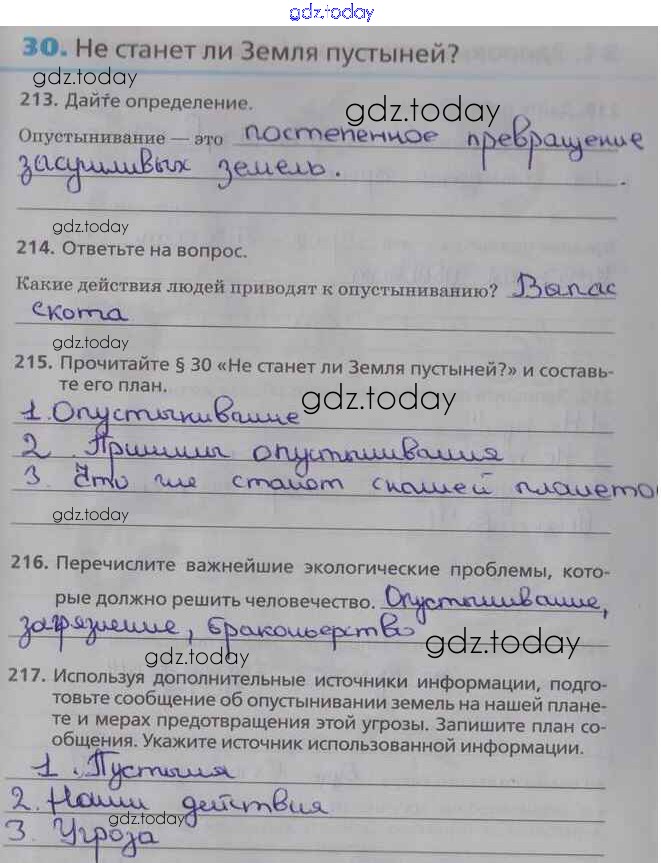 gdz.today
30. Не станет ли Земля пустыней?
gdz.today
213. Дайте определение.
gdz.today
Опустынивание — это постепенное превращение
засушливых земель.
gdz.today
214. Ответьте на вопрос.
Какие действия людей приводят к опустыниванию? Выпас
скота
215. Прочитайте § 30 «Не станет ли Земля пустыней?» и составь-
те его план.
gdz.today
1. Опустынивание
2. Причины опустынивания
3. Что же станет с нашей плането
gdz.today
216. Перечислите важнейшие экологические проблемы, кото-
рые должно решить человечество. Опустынивание,
загрязнение, браконьерство
gdz.today
gdz.today
217. Используя дополнительные источники информации, подго-
товьте сообщение об опустынивании земель на нашей плане-
те и мерах предотвращения этой угрозы. Запишите план со-
общения. Укажите источник использованной информации.
1. Пустыня
gdz.today
2. Наши действия
gdz.today
3. Угроза
gdz.today